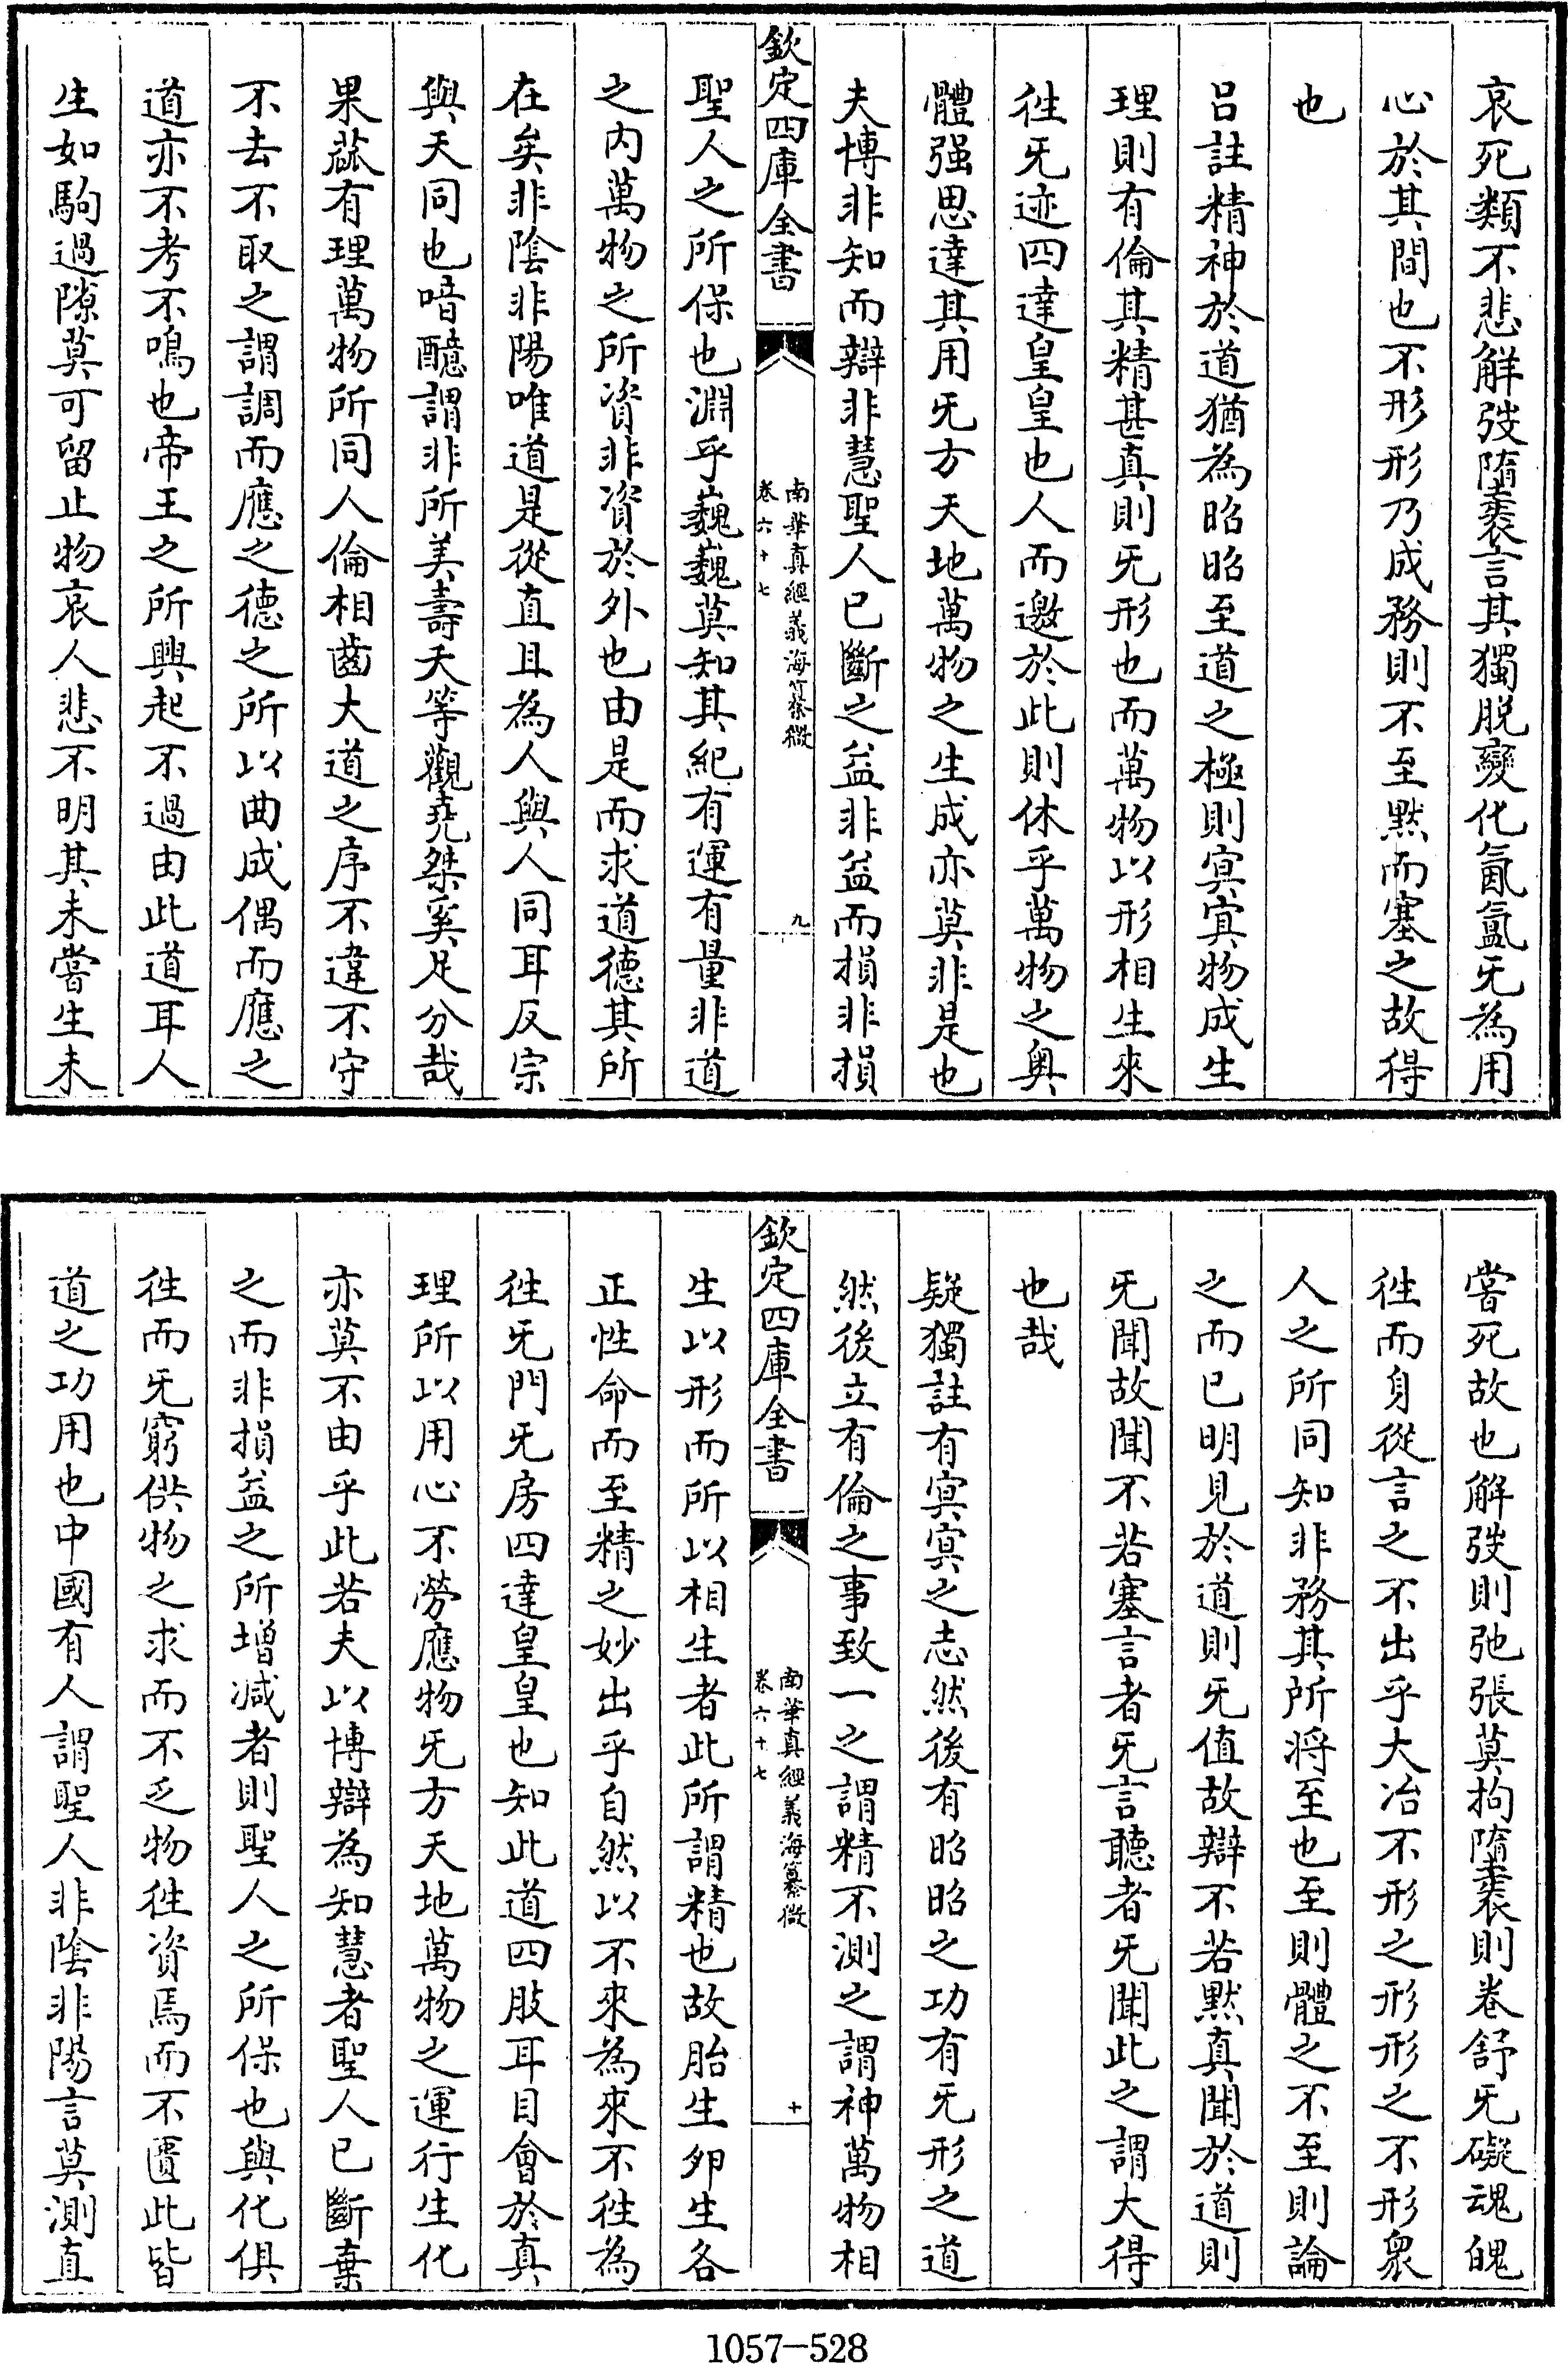 哀死類不悲解弢隳袠言其獨脱變化氤氲无為用
心於其間也不形形乃成務則不至黙而塞之故得
也
吕註精神於道猶為昭昭至道之極則㝠㝠物成生
理則有倫其精甚真則无形也而萬物以形相生來
徃无迹四達皇皇也人而邀於此則休乎萬物之奥
體强思達其用无方天地萬物之生成亦莫非是也
夫博非知而辯非慧聖人已斷之益非益而損非損
欽定四庫全書
南華真經義海纂微
卷六十七
九
聖人之所保也淵乎巍巍莫知其紀有運有量非道
之内萬物之所資非資於外也由是而求道德其所
在矣非陰非陽唯道是從直且為人與人同耳反宗
與天同也喑醷謂非所美壽夭等觀堯桀奚足分哉
果蓏有理萬物所同人倫相齒大道之序不違不守
不去不取之謂調而應之德之所以曲成偶而應之
道亦不考不鳴也帝王之所興起不過由此道耳人
生如駒過隙莫可留止物哀人悲不明其未嘗生未
嘗死故也解弢則弛張莫拘隳袠則卷舒无礙魂魄
徃而身從言之不出乎大冶不形之形形之不形衆
人之所同知非務其所將至也至則體之不至則論
之而已明見於道則无值故辯不若黙真聞於道則
无聞故聞不若塞言者无言聽者无聞此之謂大得
也哉
疑獨註有㝠㝠之志然後有昭昭之功有无形之道
然後立有倫之事致一之謂精不測之謂神萬物相
欽定四庫全書
南華真經義海纂微
卷六十七
十
生以形而所以相生者此所謂精也故胎生卵生各
正性命而至精之妙出乎自然以不來為來不徃為
徃无門无房四達皇皇也知此道四肢耳目會於真
理所以用心不勞應物无方天地萬物之運行生化
亦莫不由乎此若夫以博辯為知慧者聖人已斷棄
之而非損益之所增减者則聖人之所保也與化俱
徃而无窮供物之求而不乏物徃資焉而不匱此皆
道之功用也中國有人謂聖人非陰非陽言莫測直
1057-528